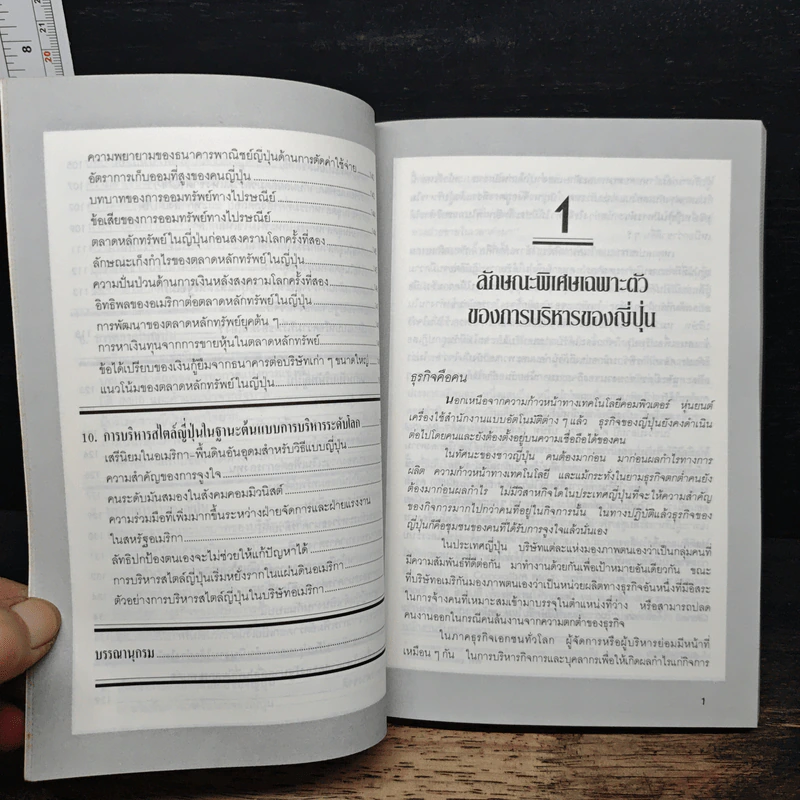 8
20
21
ความพยายามของธนาคารพาณิชย์ญี่ปุ่นด้านการตัดค่าใช้จ่าย
อัตราการเก็บออมที่สูงของคนญี่ปุ่น
บทบาทของการออมทรัพย์ทางไปรษณีย์
ข้อเสียของการออมทรัพย์ทางไปรษณีย์
ตลาดหลักทรัพย์ในญี่ปุ่นก่อนสงครามโลกครั้งที่สอง
ลักษณะเก็งกำไรของตลาดหลักทรัพย์ในญี่ปุ่น
ความปั่นป่วนด้านการเงินหลังสงครามโลกครั้งที่สอง
อิทธิพลของอเมริกาต่อตลาดหลักทรัพย์ในญี่ปุ่น
การพัฒนาของตลาดหลักทรัพย์ยุคต้น ๆ
การหาเงินทุนจากการขายหุ้นในตลาดหลักทรัพย์
ข้อได้เปรียบของเงินกู้ยืมจากธนาคารต่อบริษัทเก่า ๆ ขนาดใหญ่
แนวโน้มของตลาดหลักทรัพย์ในญี่ปุ่น
10. การบริหารสไตล์ญี่ปุ่นในฐานะต้นแบบการบริหารระดับโลก
เสรีนิยมในอเมริกา-พื้นดินอันอุดมสำหรับวิธีแบบญี่ปุ่น
ความสำคัญของการจูงใจ
คนระดับมันสมองในสังคมคอมมิวนิสต์
ความร่วมมือที่เพิ่มมากขึ้นระหว่างฝ่ายจัดการและฝ่ายแรงงาน
ในสหรัฐอเมริกา
ลัทธิปกป้องตนเองจะไม่ช่วยให้แก้ปัญหาได้
การบริหารสไตล์ญี่ปุ่นเริ่มหยั่งรากในแผ่นดินอเมริกา
ตัวอย่างการบริหารสไตล์ญี่ปุ่นในบริษัทอเมริกา
บรรณานุกรม
1
ลักษณะพิเศษเฉพาะตัว
ของการบริหารของญี่ปุ่น
ธุรกิจคือคน
นอกเหนือจากความก้าวหน้าทางเทคโนโลยีคอมพิวเตอร์ หุ่นยนต์
เครื่องใช้สำนักงานแบบอัตโนมัติต่าง ๆ แล้ว ธุรกิจของญี่ปุ่นยังคงดำเนิน
ต่อไปโดยคนและยังต้องตั้งอยู่บนความเชื่อถือได้ของคน
ในทัศนะของชาวญี่ปุ่น คนต้องมาก่อน มาก่อนผลกำไรทางการ
ผลิต ความก้าวหน้าทางเทคโนโลยี และแม้กระทั่งในยามธุรกิจตกต่ำคนยัง
ต้องมาก่อนผลกำไร ไม่มีวิสาหกิจใดในประเทศญี่ปุ่นที่จะให้ความสำคัญ
ของกิจการมากไปกว่าคนที่อยู่ในกิจการนั้น ในทางปฏิบัติแล้วธุรกิจของ
ญี่ปุ่นก็คือชุมชนของคนที่ได้รับการจูงใจแล้วนั่นเอง
ในประเทศญี่ปุ่น บริษัทแต่ละแห่งมองภาพตนเองว่าเป็นกลุ่มคนที่
มีความสัมพันธ์ที่ดีต่อกัน มาทำงานด้วยกันเพื่อเป้าหมายอันเดียวกัน ขณะ
ที่บริษัทอเมริกันมองภาพตนเองว่าเป็นหน่วยผลิตทางธุรกิจอันหนึ่งที่มีอิสระ
ในการจ้างคนที่เหมาะสมเข้ามาบรรจุในตำแหน่งที่ว่าง หรือสามารถปลด
คนงานออกในกรณีคนล้นงานจากความตกต่ำของธุรกิจ
ในภาคธุรกิจเอกชนทั่วโลก ผู้จัดการหรือผู้บริหารย่อมมีหน้าที่
เหมือน ๆ กัน ในการบริหารกิจการและบุคลากรเพื่อให้เกิดผลกำไรแก่กิจการ
1